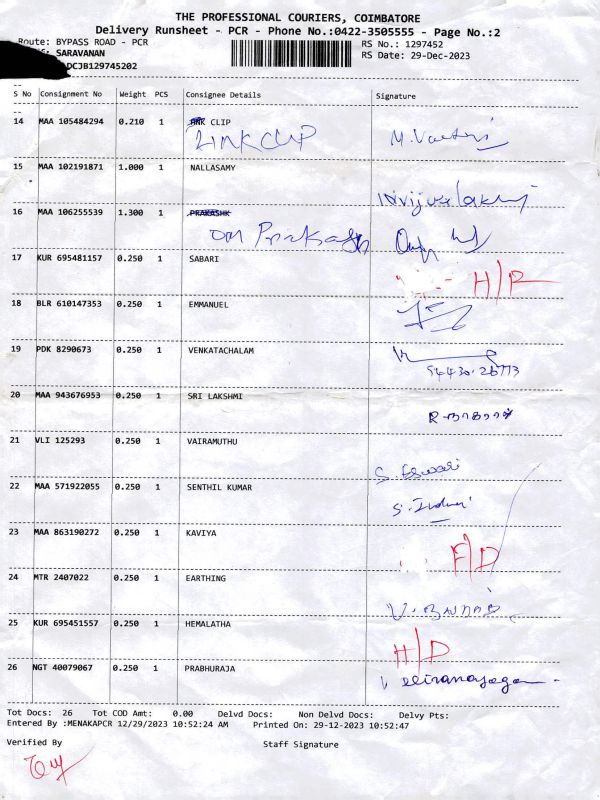 THE PROFESSIONAL COURIERS, COIMBATORE
Delivery Runsheet - PCR - Phone No.:0422-3505555 - Page No.:2
Route: BYPASS ROAD - PCR RS No.: 1297452
: SARAVANAN RS Date: 29-Dec-2023
DCJB129745202
S No Consignment No Weight PCS Consignee Details Signature
14 MAA 105484294 0.210 1 CLIP
LINK CLIP
15 MAA 102191871 1.000 1 NALLASAMY
16 MAA 106255539 1.300 1 PRAKASHK
OM Prakash
17 KUR 695481157 0.250 1 SABARI H/R
18 BLR 610147353 0.250 1 EMMANUEL
19 PDK 8290673 0.250 1 VENKATACHALAM
20 MAA 943676953 0.250 1 SRI LAKSHMI
21 VLI 125293 0.250 1 VAIRAMUTHU
S. Eswari
22 MAA 571922055 0.250 1 SENTHIL KUMAR
23 MAA 863190272 0.250 1 KAVIYA
24 MTR 2407022 0.250 1 EARTHING
25 KUR 695451557 0.250 1 HEMALATHA H/D
26 NGT 40079067 0.250 1 PRABHURAJA
Tot Docs: 26 Tot COD Amt: 0.00 Delvd Docs: Non Delvd Docs: Delvy Pts:
Entered By :MENAKAPCR 12/29/2023 10:52:24 AM Printed On: 29-12-2023 10:52:47
Verified By Staff Signature